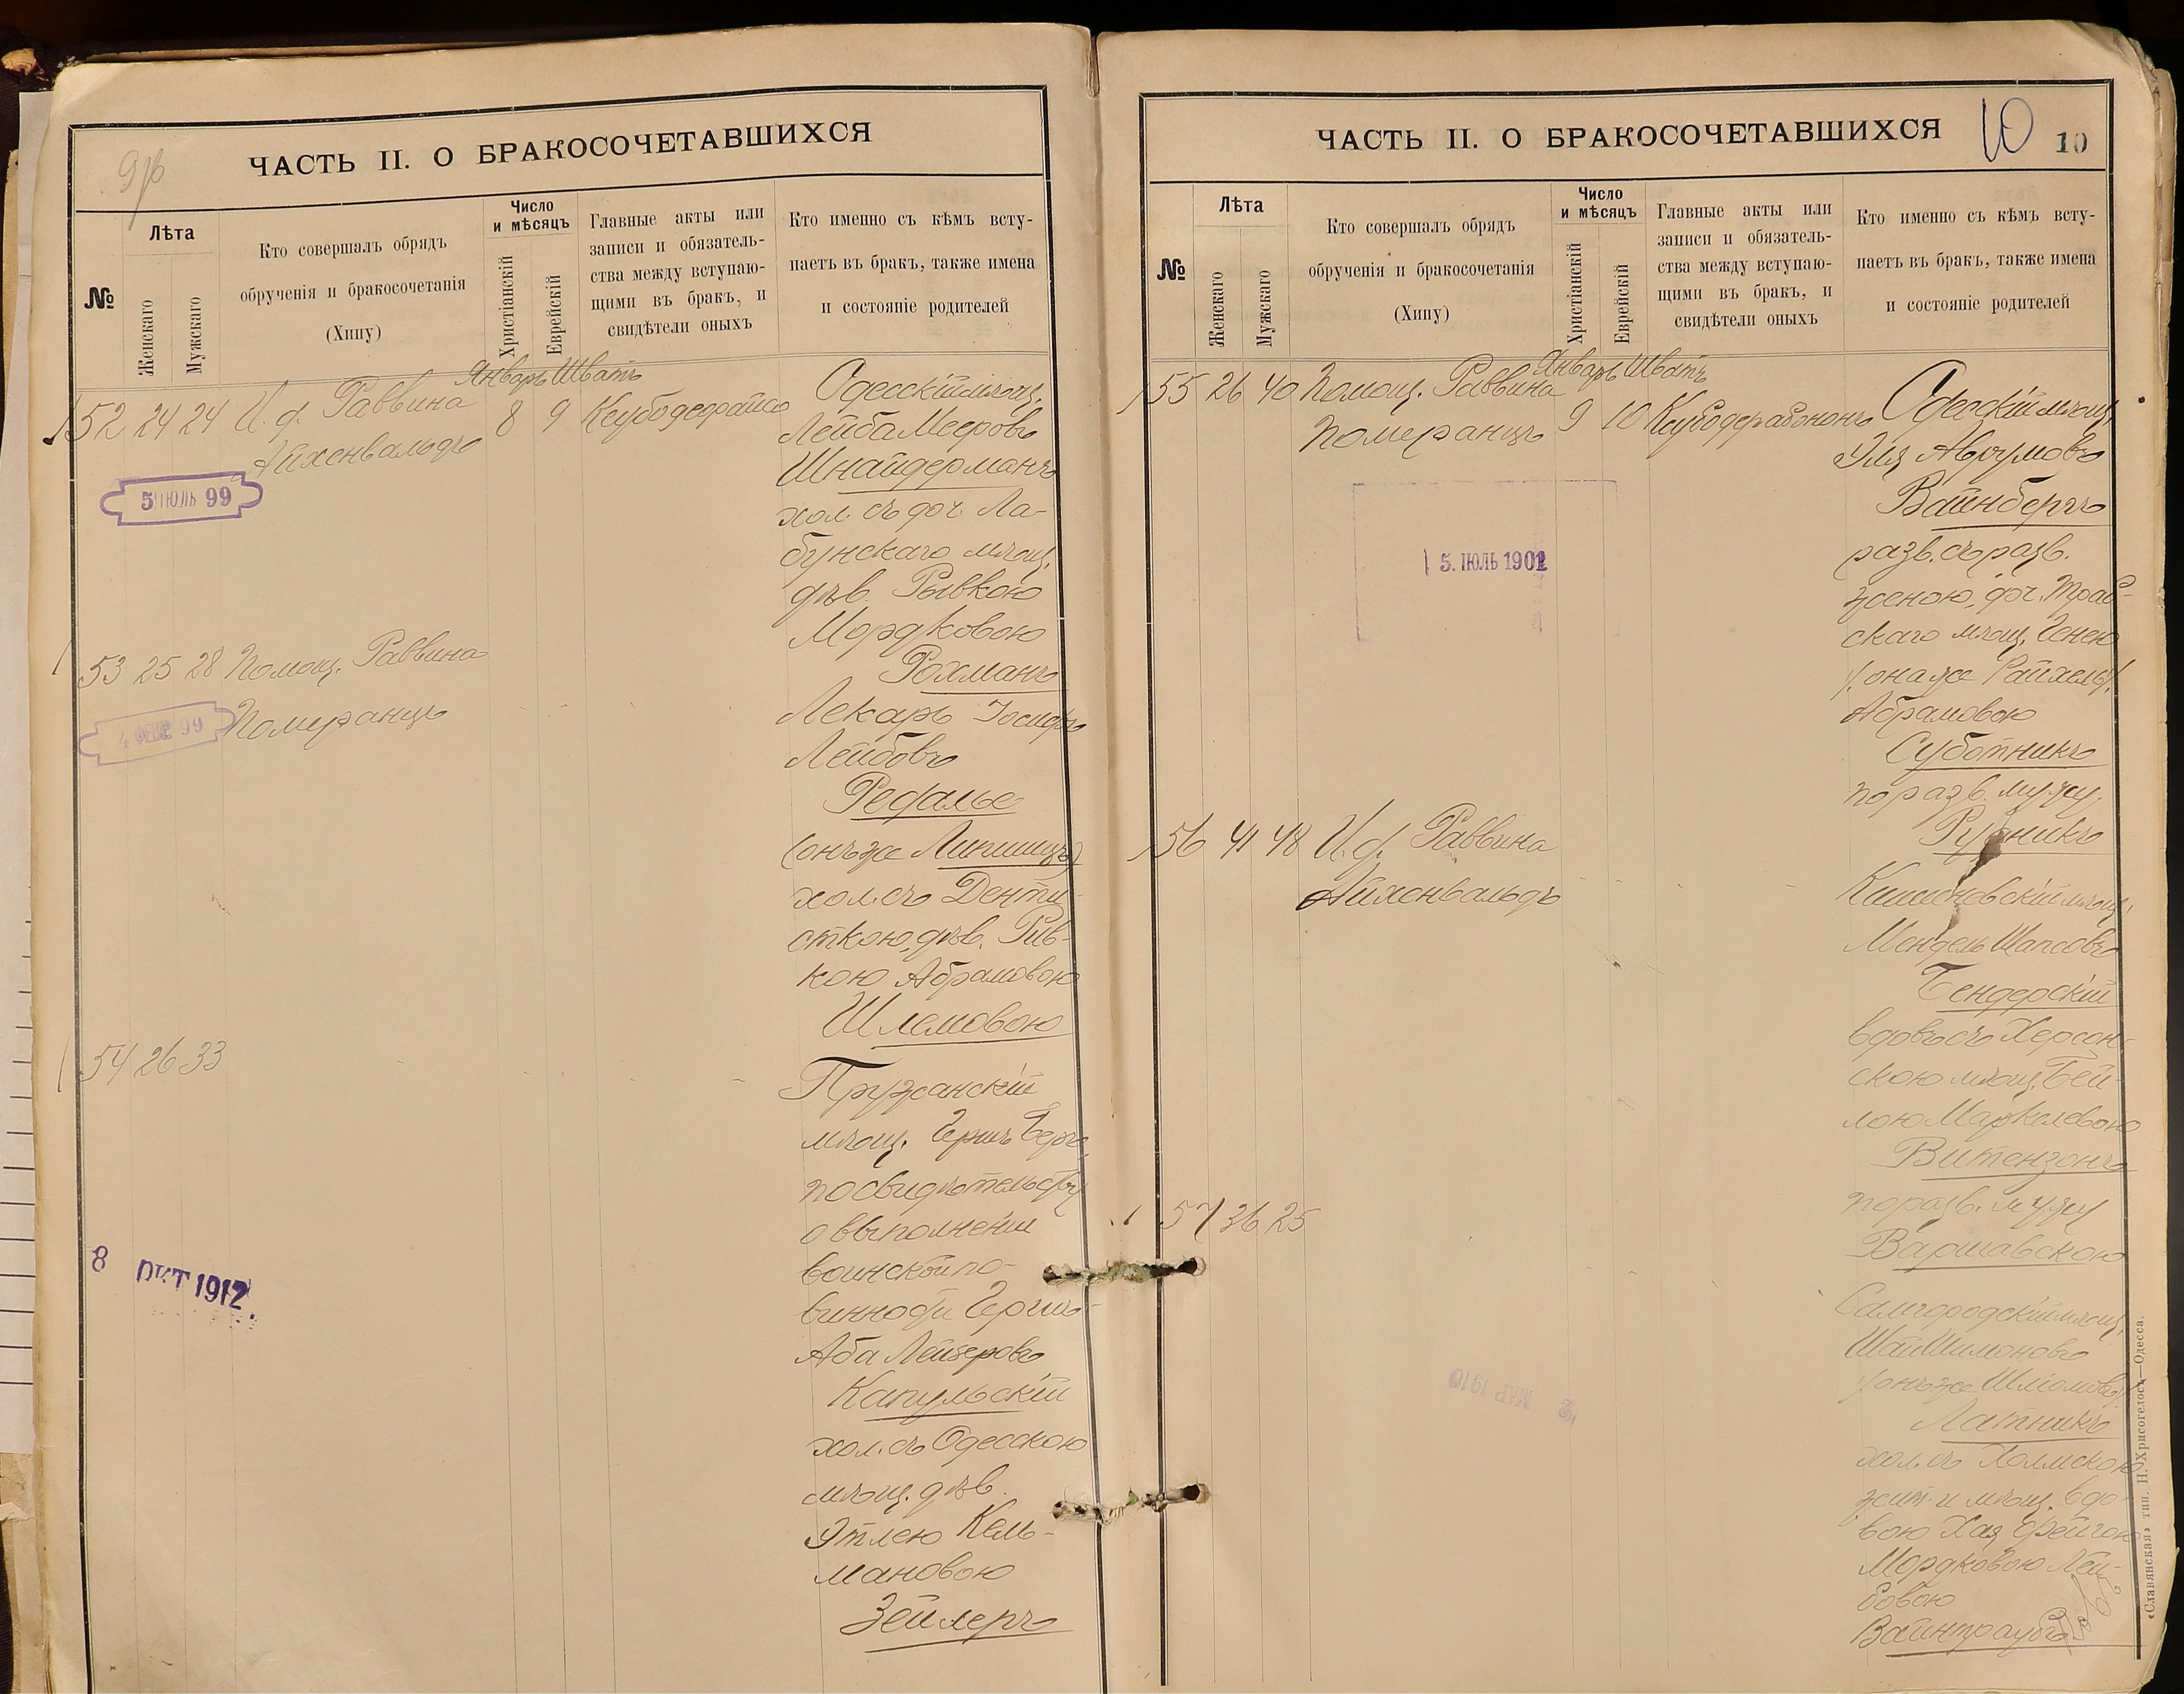 9/6
ЧАСТЬ II. О БРАКОСОЧЕТАВШИХСЯ
№
Лѣта
Женскаго
Мужскаго
Кто совершалъ обрядъ
обрученія и бракосочетанія
(Хипу)
Число
и мѣсяцъ
Христіанскій
Еврейскій
Главные акты или
записи и обязатель-
ства между вступаю-
щими въ бракъ, и
свидѣтели оныхъ
Кто именно съ кѣмъ всту-
паетъ въ бракъ, также имена
и состояніе родителей
Январь Шватъ
52 24 24 И. д. Раввина
Айхенвальдъ
8 9
Одесскій мѣщ.
Лейба Мееровъ
Шнайдерманъ
хол. съ доч. Ла-
бунскаго мѣщ.
дѣв. Рывкою
Мордковою
Рохманъ
5 ІЮЛЬ 99
53 25 28 Помощ. Раввина
Померанцъ
Лекарь Іосифъ
Лейбовъ
Рефалье
(онъ же Липшицъ)
хол. съ Денти-
сткою, дѣв. Рив-
кою Абрамовою
Шлемовою
4 99
54 26 33
Пружанскій
мѣщ. Гершъ Берг,
по свидѣтельству
о выполненіи
воинской по-
винности Гершъ-
Аба Лейзеровъ
Капульскій
хол. съ Одесскою
мѣщ. дѣв.
Этлею Кель-
мановою
Зейлеръ
8 ОКТ 1912.
ЧАСТЬ II. О БРАКОСОЧЕТАВШИХСЯ
10
10
№
Лѣта
Женскаго
Мужскаго
Кто совершалъ обрядъ
обрученія и бракосочетанія
(Хипу)
Число
и мѣсяцъ
Христіанскій
Еврейскій
Главные акты или
записи и обязатель-
ства между вступаю-
щими въ бракъ, и
свидѣтели оныхъ
Кто именно съ кѣмъ всту-
паетъ въ бракъ, также имена
и состояніе родителей
Январь Шватъ
55 26 40 Помощ. Раввина
Померанцъ
9 10
Одесскій мѣщ.
Эля Аврумовъ
Вайнбергъ
разв. съ разв.
женою, доч.
скаго мѣщ. Генею
(она же Райхель)
Абрамовою
Суботникъ
по разв. мужу
Рубникъ
5. ІЮЛЬ 1901
56 41 48 И. д. Раввина
Айхенвальдъ
Кишиновскій мѣщ.
Мендель Шапсовъ
Бендерскій
вдовъ съ Херсон-
скою мѣщ. Бей-
лою Маркелевою
Витензонъ
по разв. мужу
Варшавскою
57 36 25
Самгородскій мѣщ.
Шая Шимоновъ
(онъ же Шліомовъ)
Латникъ
хол. съ Холмскою
жит. и мѣщ. вдо-
вою Хая Фейгою
Мордковою Лей-
бовою
Вайнтраубъ
МАР 1910
«Славянская» тип. Н. Хрисогелосъ—Одесса.